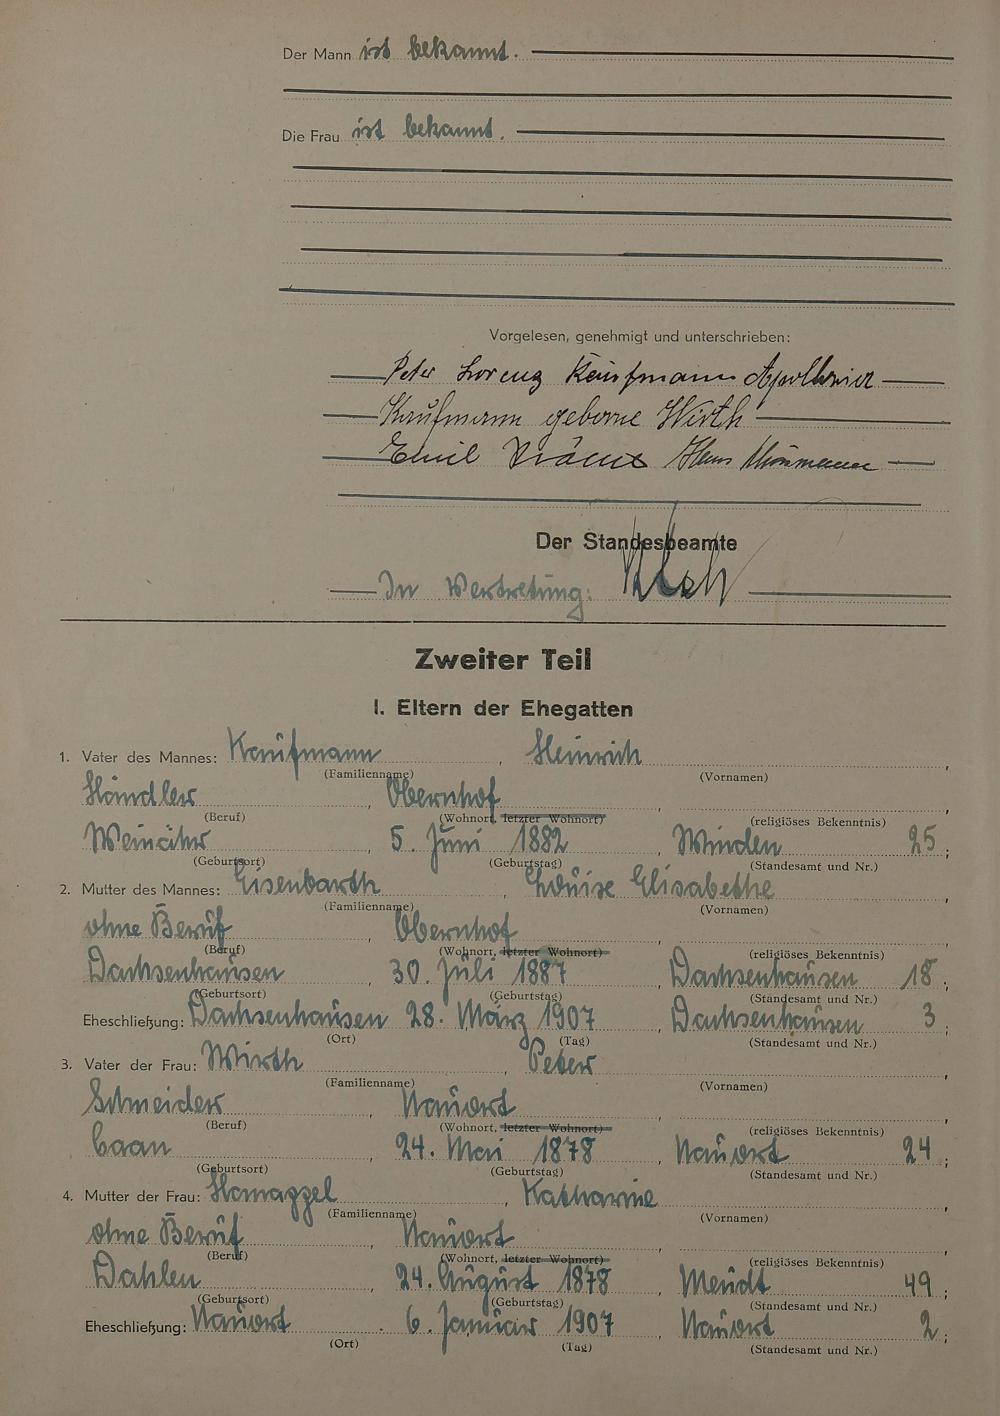 Der Mann ist bekannt.
Die Frau ist bekannt.
Vorgelesen, genehmigt und unterschrieben:
Peter Lorenz Kaufmann Apollonia
Kaufmann geborne Wirth
Emil Hans
Der Standesbeamte
In Vertretung:
Zweiter Teil
I. Eltern der Ehegatten
1. Vater des Mannes: Kaufmann, Heinrich,
(Familienname) (Vornamen)
Händler, Obernhof,
(Beruf) (Wohnort, letzter Wohnort) (religiöses Bekenntnis)
Weinähr, 5. Juni 1882, Winden 25;
(Geburtsort) (Geburtstag) (Standesamt und Nr.)
2. Mutter des Mannes: Eisenbarth, Louise Elisabethe,
(Familienname) (Vornamen)
ohne Beruf, Obernhof,
(Beruf) (Wohnort, letzter Wohnort) (religiöses Bekenntnis)
Dachsenhausen, 30. Juli 1887, Dachsenhausen 18;
(Geburtsort) (Geburtstag) (Standesamt und Nr.)
Eheschließung: Dachsenhausen 28. März 1907, Dachsenhausen 3;
(Ort) (Tag) (Standesamt und Nr.)
3. Vater der Frau: Wirth, Peter,
(Familienname) (Vornamen)
Schneider, Nauort,
(Beruf) (Wohnort, letzter Wohnort) (religiöses Bekenntnis)
Caan, 24. Mai 1878, Nauort 24;
(Geburtsort) (Geburtstag) (Standesamt und Nr.)
4. Mutter der Frau: , Katharine,
(Familienname) (Vornamen)
ohne Beruf, Nauort,
(Beruf) (Wohnort, letzter Wohnort) (religiöses Bekenntnis)
Dahlen, 24. August 1878, Meudt 49;
(Geburtsort) (Geburtstag) (Standesamt und Nr.)
Eheschließung: Nauort. 6. Januar 1907, Nauort 2;
(Ort) (Tag) (Standesamt und Nr.)